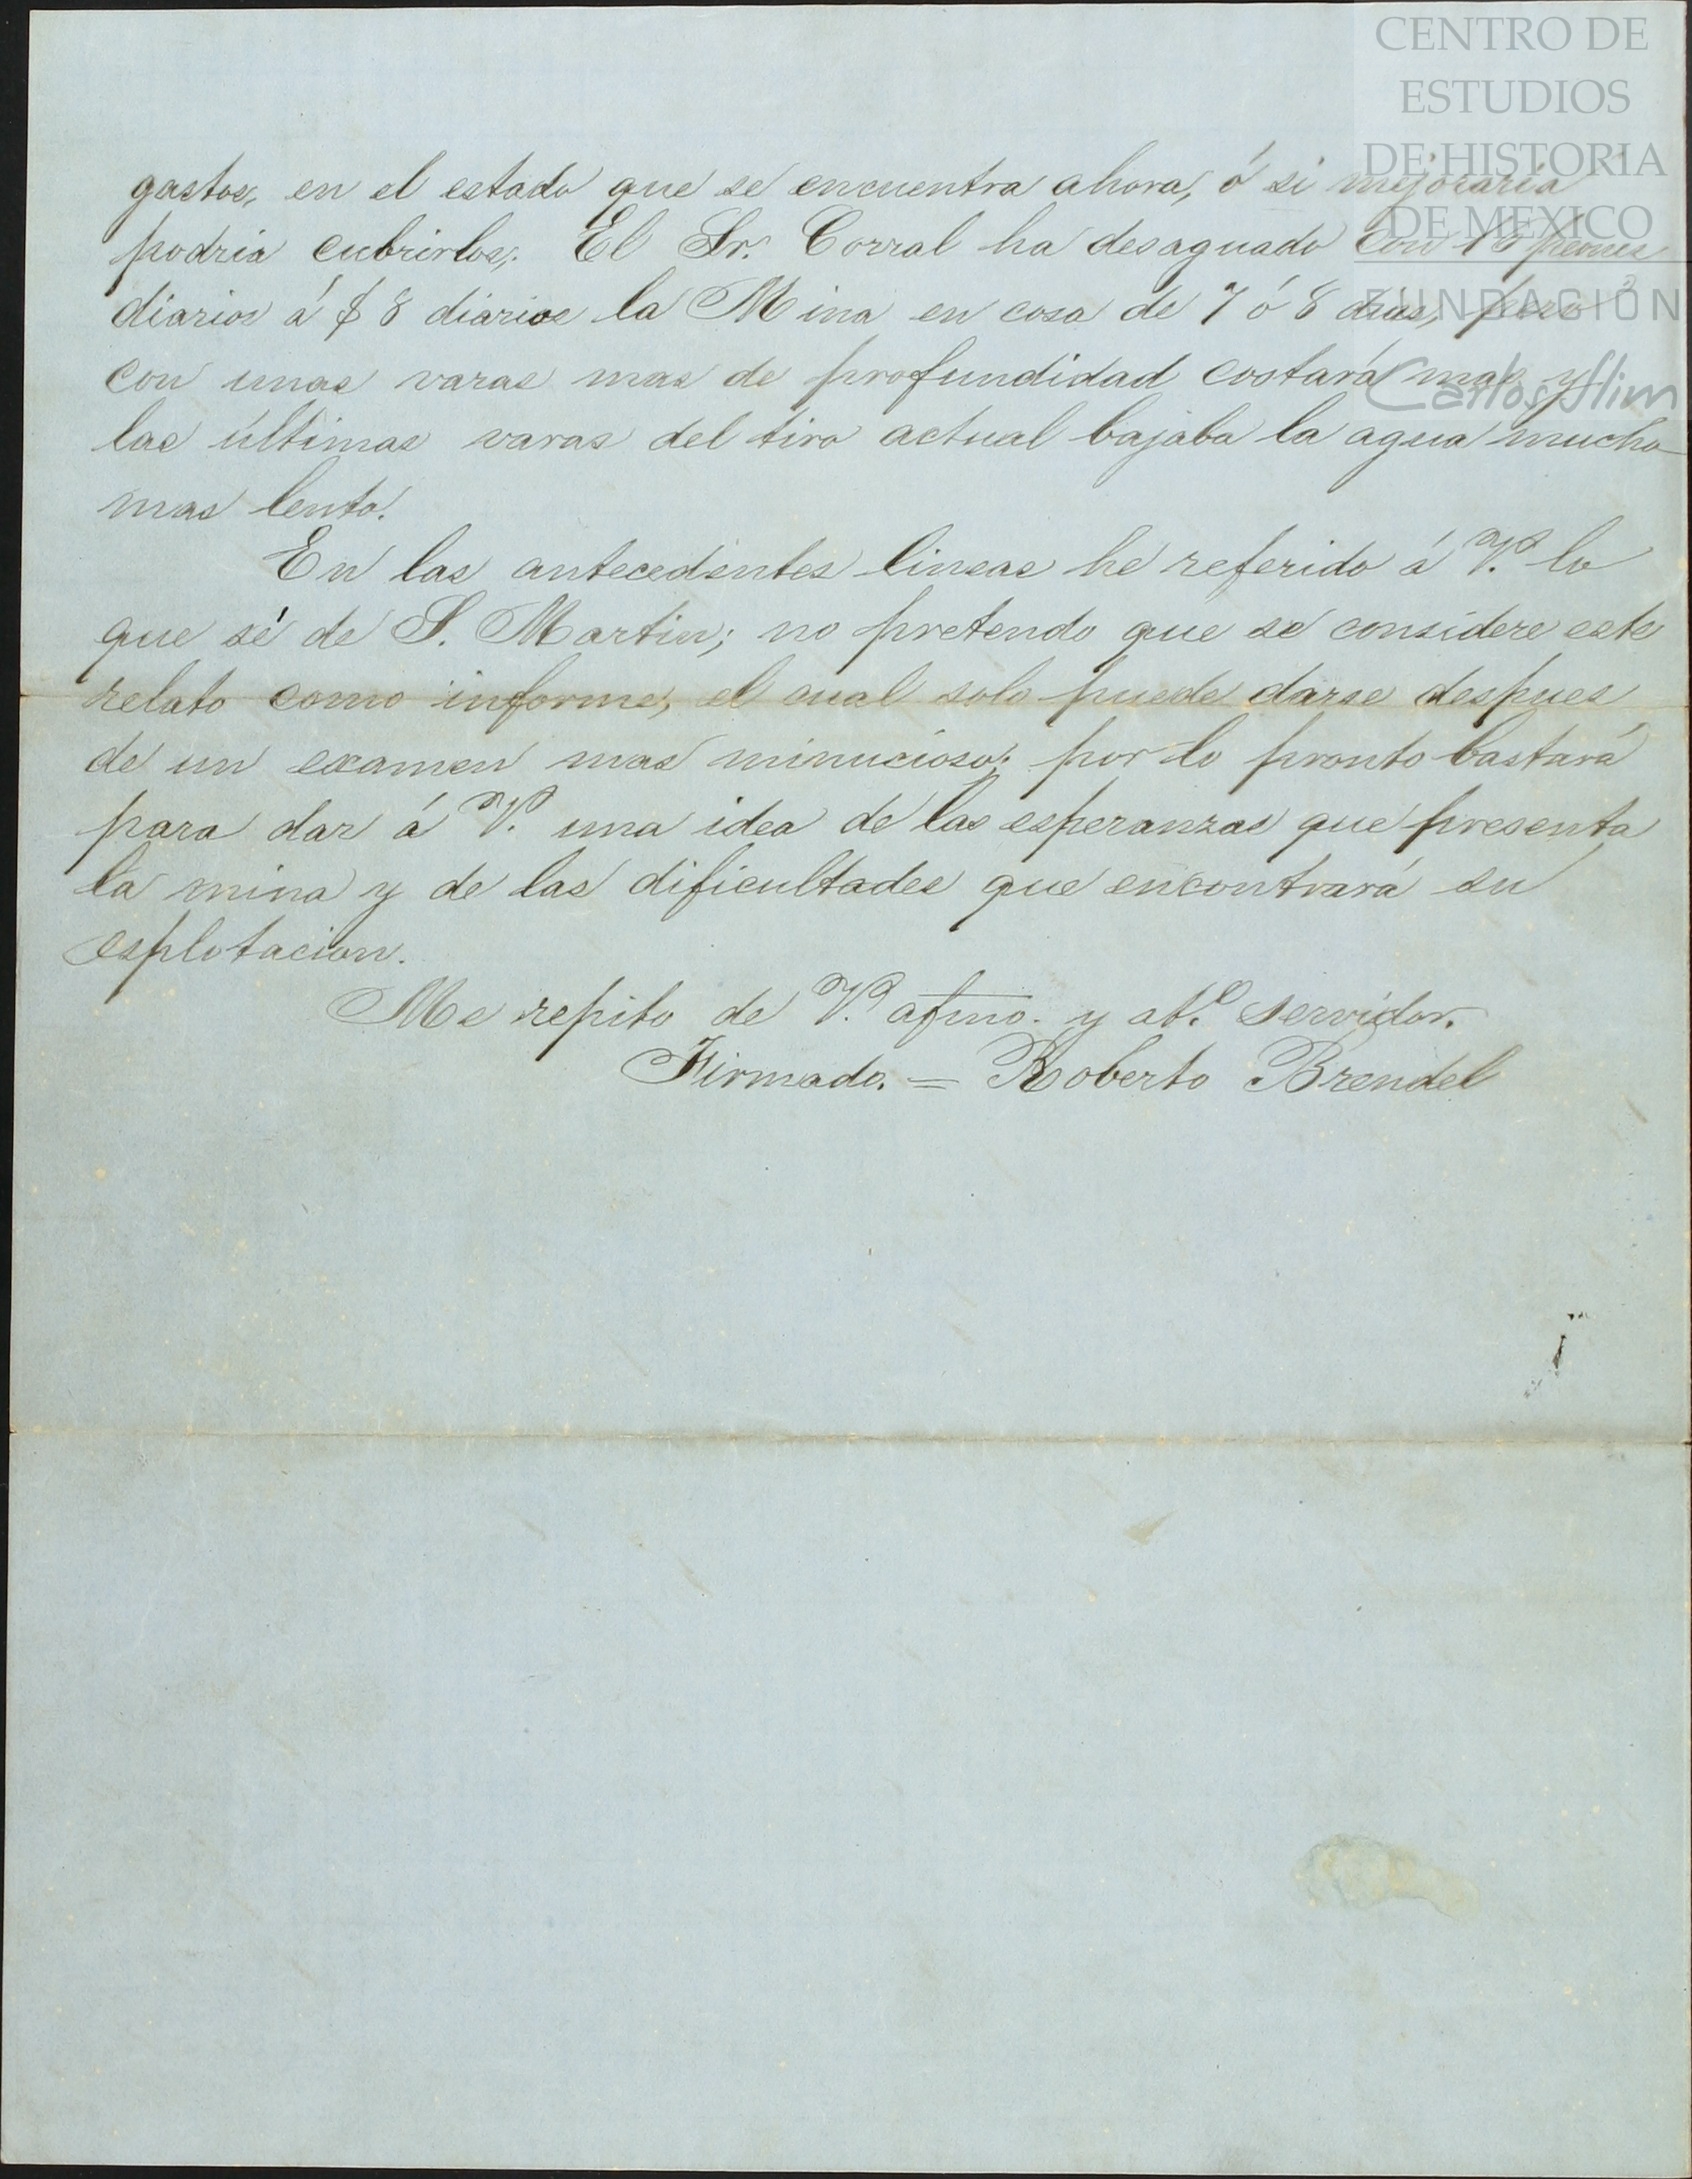 CENTRO DE
ESTUDIOS
DE HISTORIA
DE MEXICO
FUNDACIÓN
Carlos Slim
gastos, en el estado que se encuentra ahora, ó si mejoraria
podria cubrirlos. El Sr. Corral ha desaguado con
diarios á $ 8 diarios la Mina en cosa de 7 ó 8 dias, pero
con unas varas mas de profundidad costará mas y
las últimas varas del tiro actual bajaba la agua mucho
mas lento.
En las antecedentes lineas he referido á V. lo
que sé de S. Martin; no pretendo que se considere este
relato como informe, el cual solo puede darse despues
de un examen mas minucioso; por lo pronto bastará
para dar á V. una idea de las esperanzas que presenta
la mina y de las dificultades que encontrará su
esplotacion.
Me repito de V. afmo. y at.o servidor.
Firmado. = Roberto Brendel